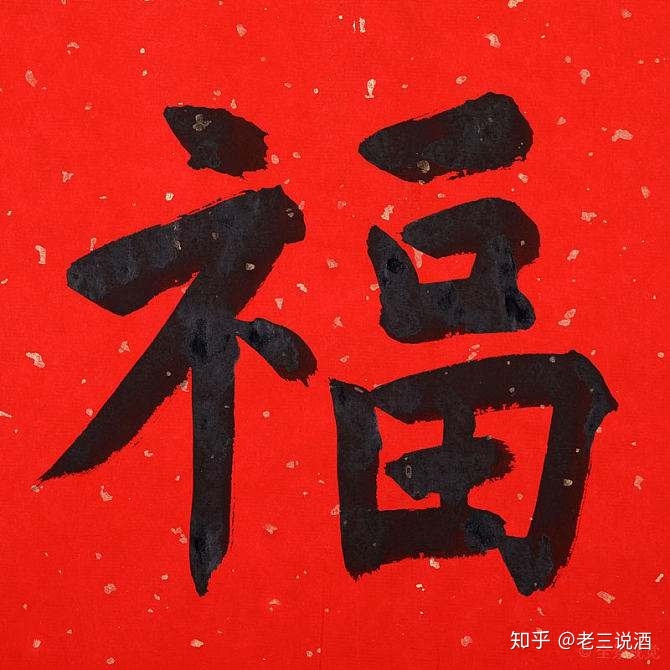 福
知乎 @老三说酒